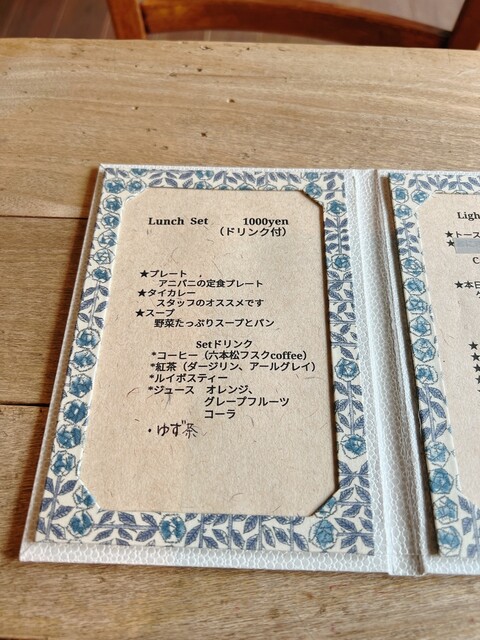 Lunch Set 1000yen
(ドリンク付)
★プレート
アニパニの定食プレート
★タイカレー
スタッフのオススメです
★スープ
野菜たっぷりスープとパン
Setドリンク
*コーヒー（六本松フスクcoffee）
*紅茶（ダージリン、アールグレイ）
*ルイボスティー
*ジュース オレンジ、
グレープフルーツ
コーラ
・ゆず茶
Ligh
★トース
★
C
★本日